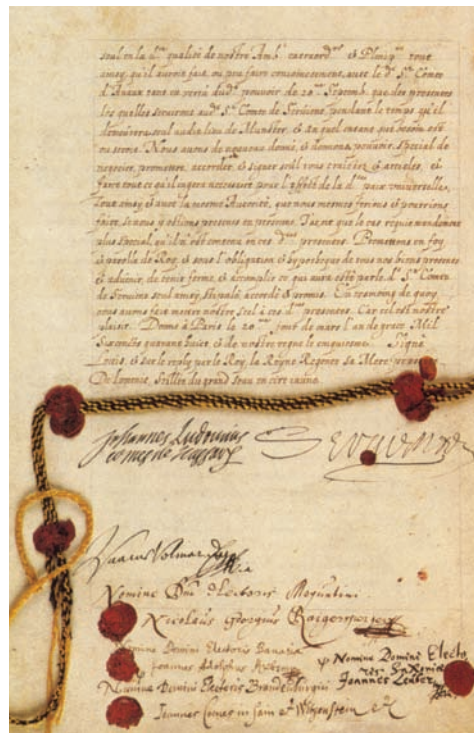 seul en la d.te qualité de nostre Amb.r
amsy, qu'il auroit fait, ou peu faire conjoinctement, avec le d. S.r Comte
d'Avaux tant en vertu dud. pouvoir de 20.me Septemb. que des presentes
les quelles servirons aud. S.r Comte de Servient, pendant le temps qu'il
demeurera seul aud. lieu de Munster, & en quel
ou seroit. Nous avons de nouveau donné, & donnons, pouvoir, special de
negocier, promettre, accorder & signer seul tous traictez & articles, &
faire tout ce qu'il jugera necessaire pour l'effect de la d. paix universelle,
tout amsy & avec la mesme Autorité, que nous mesmes ferions & pourrions
faire, si nous y estions presents en personne, Jaçoit que le cas requit mandement
plus special, qu'il n'est contenu en ces d. presentes. Promettons en foy
& parolle de Roy, & sous l'obligation & hypotheque de tous nos biens presents
& advenir, de tenir ferme, & accomplir ce qui aura esté par le d. S.r Comte
de Servient seul amsy, stipulé accordé & promis. En tesmoing de quoy
nous avons fait mettre nostre scel à ces d. presentes. Car tel est nostre
plaisir. Donné à Paris le 20.me jour de mars l'an de grace Mil
Six cents quarante huict & de nostre regne le cinquiesme. Signé
Louis, & sur le reply par le Roy, la Reyne Regente sa Mere presente
De Lomenie, Seellée du grand Sceau en cire
Johannes Ludovicus
comes de Nassau
Servient
Isaacus Volmar
Nomine Dni Electoris Moguntini
Nicolaus Georgius Raigersperger
Nomine Domini Electoris Bavariae
Joannes Adolphus
Nomine Domini Electoris Saxoniae
Joannes Leuber
Nomine Domini Electoris Brandenburgici
Joannes Comes in Sain & Witgenstein